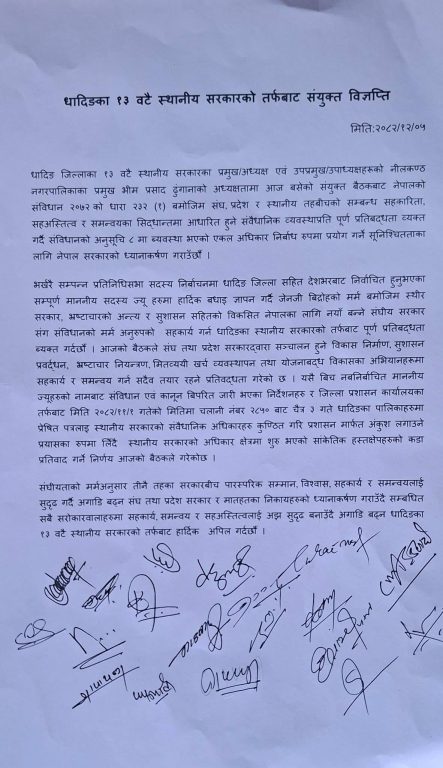 धादिङका १३ वटै स्थानीय सरकारको तर्फबाट संयुक्त विज्ञप्ति
मिति:२०८२/१२/०५
धादिङ जिल्लाका १३ वटै स्थानीय सरकारका प्रमुख/अध्यक्ष एवं उपप्रमुख/उपाध्यक्षहरूको नीलकण्ठ
नगरपालिकाका प्रमुख भीम प्रसाद ढुंगानाको अध्यक्षतामा आज बसेको संयुक्त बैठकबाट नेपालको
संविधान २०७२ को धारा २३२ (१) बमोजिम संघ, प्रदेश र स्थानीय तहबीचको सम्बन्ध सहकारिता,
सहअस्तित्व र समन्वयका सिदधान्तमा आधारित हुने संवैधानिक व्यवस्थाप्रति पूर्ण प्रतिबद्धता व्यक्त
गर्दै संविधानको अनुसूचि ८ मा व्यवस्था भएको एकल अधिकार निर्बाध रुपमा प्रयोग गर्ने सुनिश्चितताका
लागि नेपाल सरकारको ध्यानाकर्षण गराउँछौं ।
भर्खरै सम्पन्न प्रतिनिधिसभा सदस्य निर्वाचनमा धादिङ जिल्ला सहित देशभरबाट निर्वाचित हुनुभएका
सम्पूर्ण माननीय सदस्य ज्यू हरुमा हार्दिक बधाइ ज्ञापन गर्दै जेनजी बिद्रोहको मर्म बमोजिम स्थीर
सरकार, भ्रष्टाचारको अन्त्य र सुशासन सहितको विकसित नेपालका लागि नयाँ बन्ने संघीय सरकार
संग संविधानको मर्म अनुरुपको सहकार्य गर्न धादिङका स्थानीय सरकारको तर्फबाट पूर्ण प्रतिबद्धता
ब्यक्त गर्दछौं । आजको बैठकले संघ तथा प्रदेश सरकारद्वारा सञ्चालन हुने विकास निर्माण, सुशासन
प्रवर्द्धन, भ्रष्टाचार नियन्त्रण, मितव्ययी खर्च ब्यवस्थापन तथा योजनाबद्ध विकासका अभियानहरूमा
सहकार्य र समन्वय गर्न सदैव तयार रहने प्रतिवद्धता गरेको छ । यसै बिच नबनिर्बाचित माननीय
ज्यूहरुको नामबाट संविधान एवं कानून बिपरित जारी भएका निर्देशनहरु र जिल्ला प्रशासन कार्यालयका
तर्फबाट मिति २०८२/११/१ गतेको मितिमा चलानी नंबर २८५० बाट चैत्र ३ गते धादिङका पालिकाहरुमा
प्रेषित पत्रलाइ स्थानीय सरकारको संवैधानिक अधिकारहरु कुण्ठित गरि प्रशासन मार्फत अंकुश लगाउने
प्रयासका रुपमा लिँदै स्थानीय सरकारको अधिकार क्षेत्रमा शुरु भएको सांकेतिक हस्तक्षेपहरुको कडा
प्रतिवाद गर्ने निर्णय आजको बैठकले गरेकोछ ।
संघीयताको मर्मअनुसार तीनै तहका सरकारबीच पारस्परिक सम्मान, विश्वास, सहकार्य र समन्वयलाई
सुदृढ गर्दै अगाडि बढ्न संघ तथा प्रदेश सरकार र मातहतका निकायहरुको ध्यानाकर्षण गराउँदै सम्बधित
सबै सरोकारवालाहरुमा सहकार्य, समन्वय र सहअस्तित्वलाई अझ सुदृढ बनाउँदै अगाडि बढ्न धादिङका
१३ वटै स्थानीय सरकारको तर्फबाट हार्दिक अपिल गर्दछौं ।